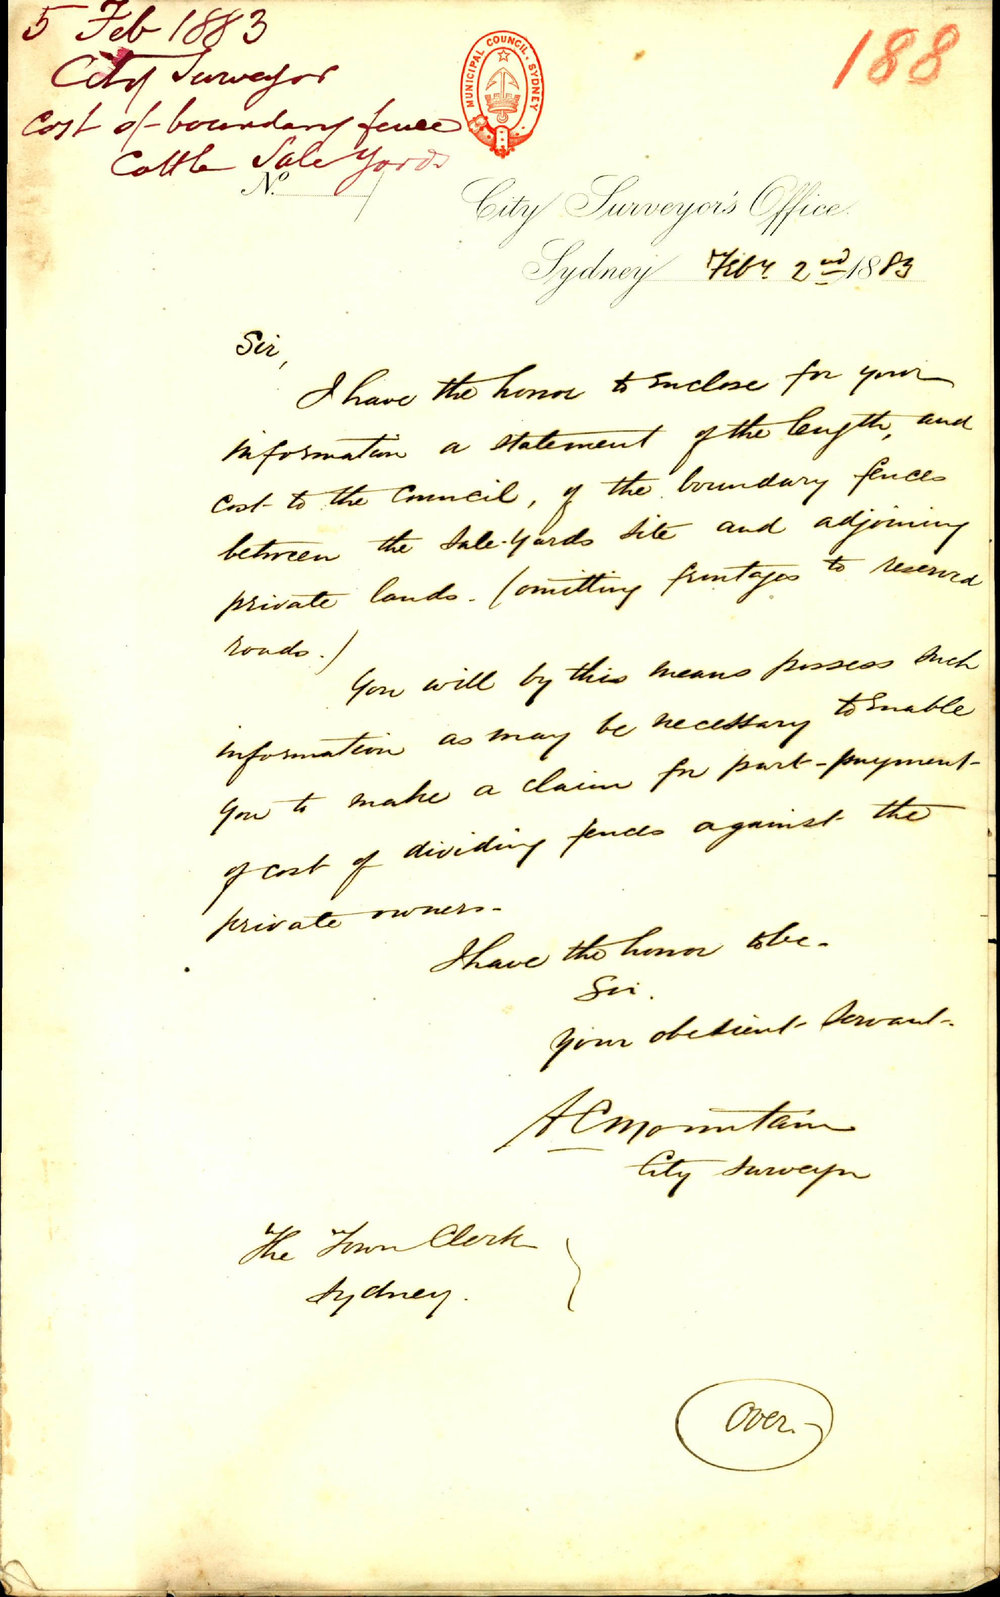 5 Feb 1883
City Surveyor
Cost of boundary fence
Cattle Sale Yards
188
MUNICIPAL COUNCIL, SYDNEY
No.
City Surveyor's Office.
Sydney Feby. 2nd 1883
Sir,
I have the honor to enclose for your
information a statement of the length, and
cost to the Council, of the boundary fences
between the Sale-Yards site and adjoining
private lands. (omitting frontages to reserved
roads.)
You will by this means possess such
information as may be necessary to enable
you to make a claim for part-payment
of cost of dividing fences against the
private owners.
I have the honor to be.
Sir.
Your obedient Servant.
A C Mountain
City Surveyor
The Town Clerk
Sydney.
Over.